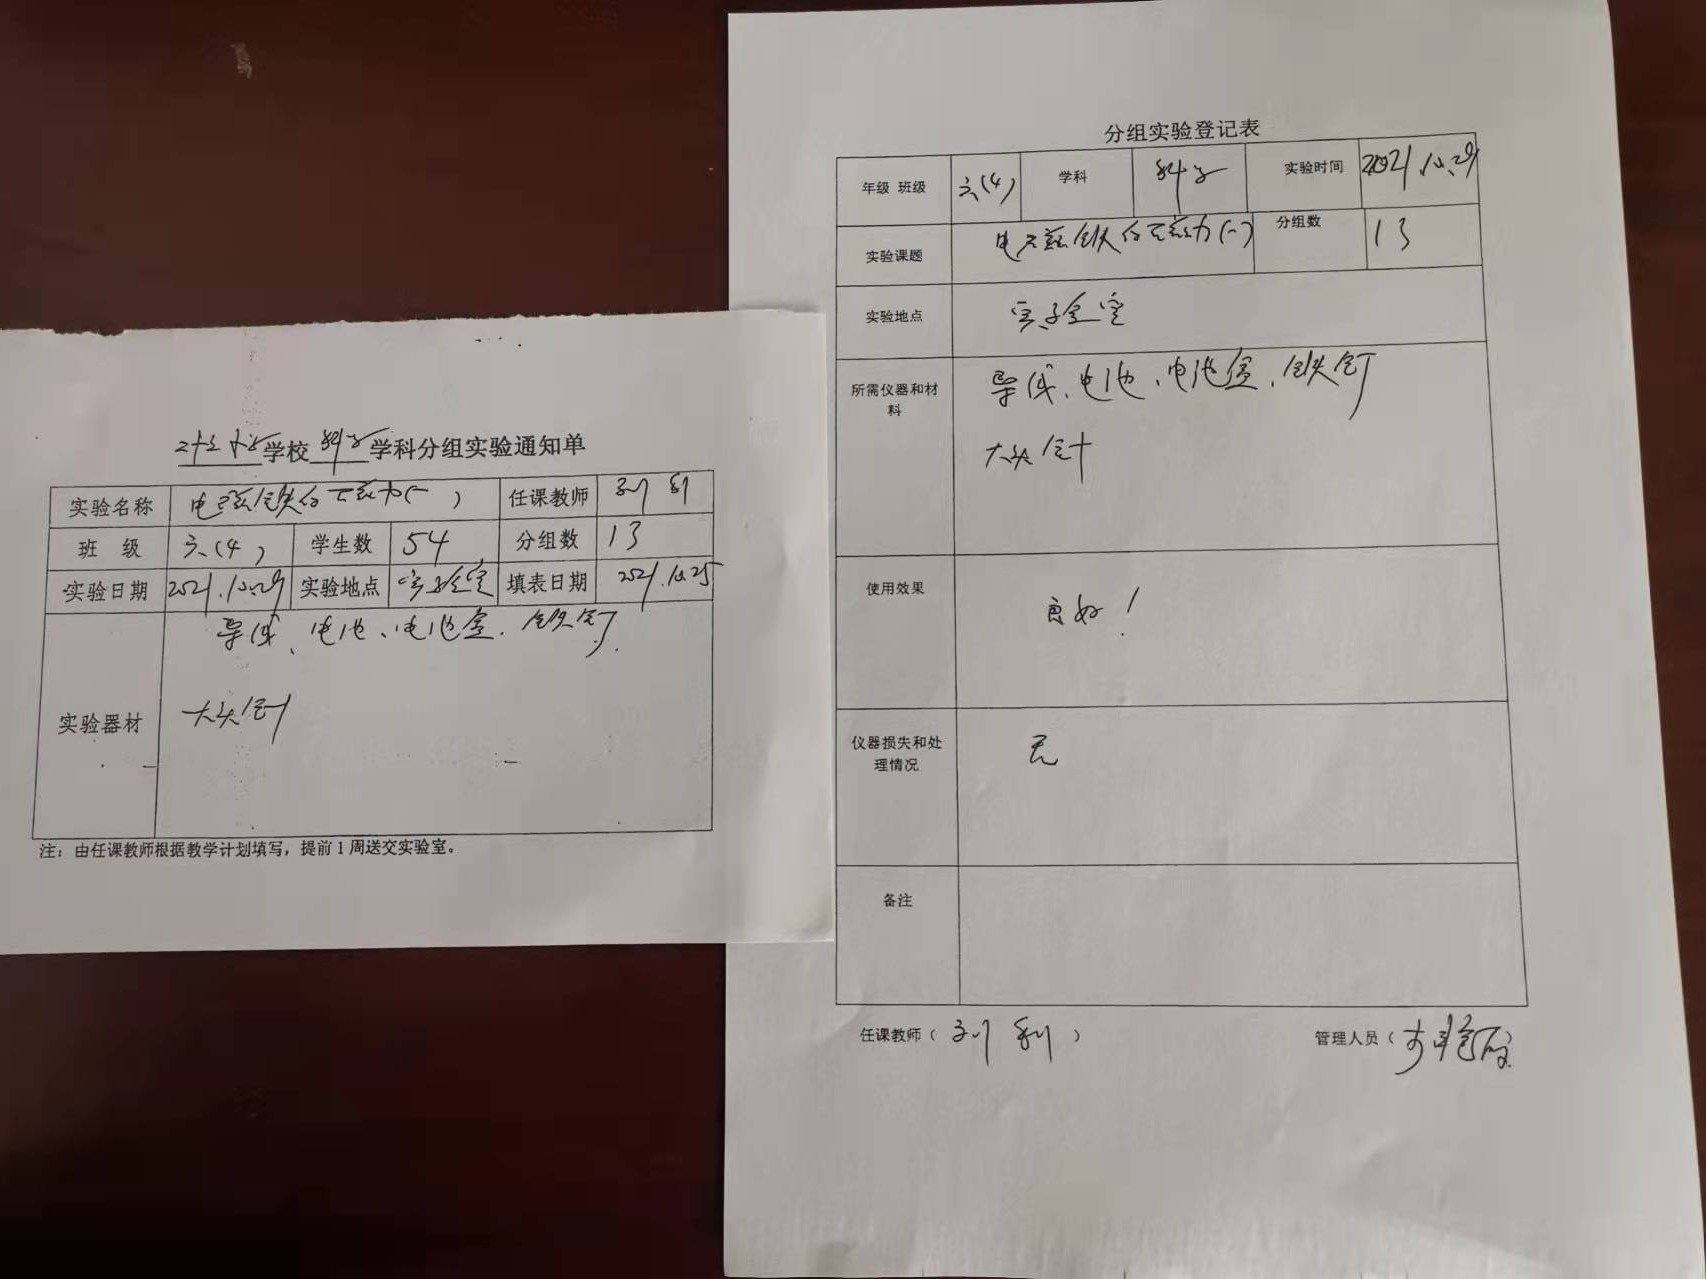 学校 科学 学科分组实验通知单
实验名称 电磁铁的磁力(一) 任课教师 刘利
班 级 六(4) 学生数 54 分组数 13
实验日期 2021.10.29 实验地点 实验室 填表日期 2021.10.25
导线、电池、电池盒、铁钉.
实验器材 大头针
注：由任课教师根据教学计划填写，提前1周送交实验室。
分组实验登记表
年级 班级 六(4) 学科 科学 实验时间 2021.10.29
实验课题 电磁铁的磁力(一) 分组数 13
实验地点 实验室
所需仪器和材料 导线、电池、电池盒、铁钉
大头针
使用效果 良好！
仪器损失和处理情况 无
备注
任课教师（刘利） 管理人员（